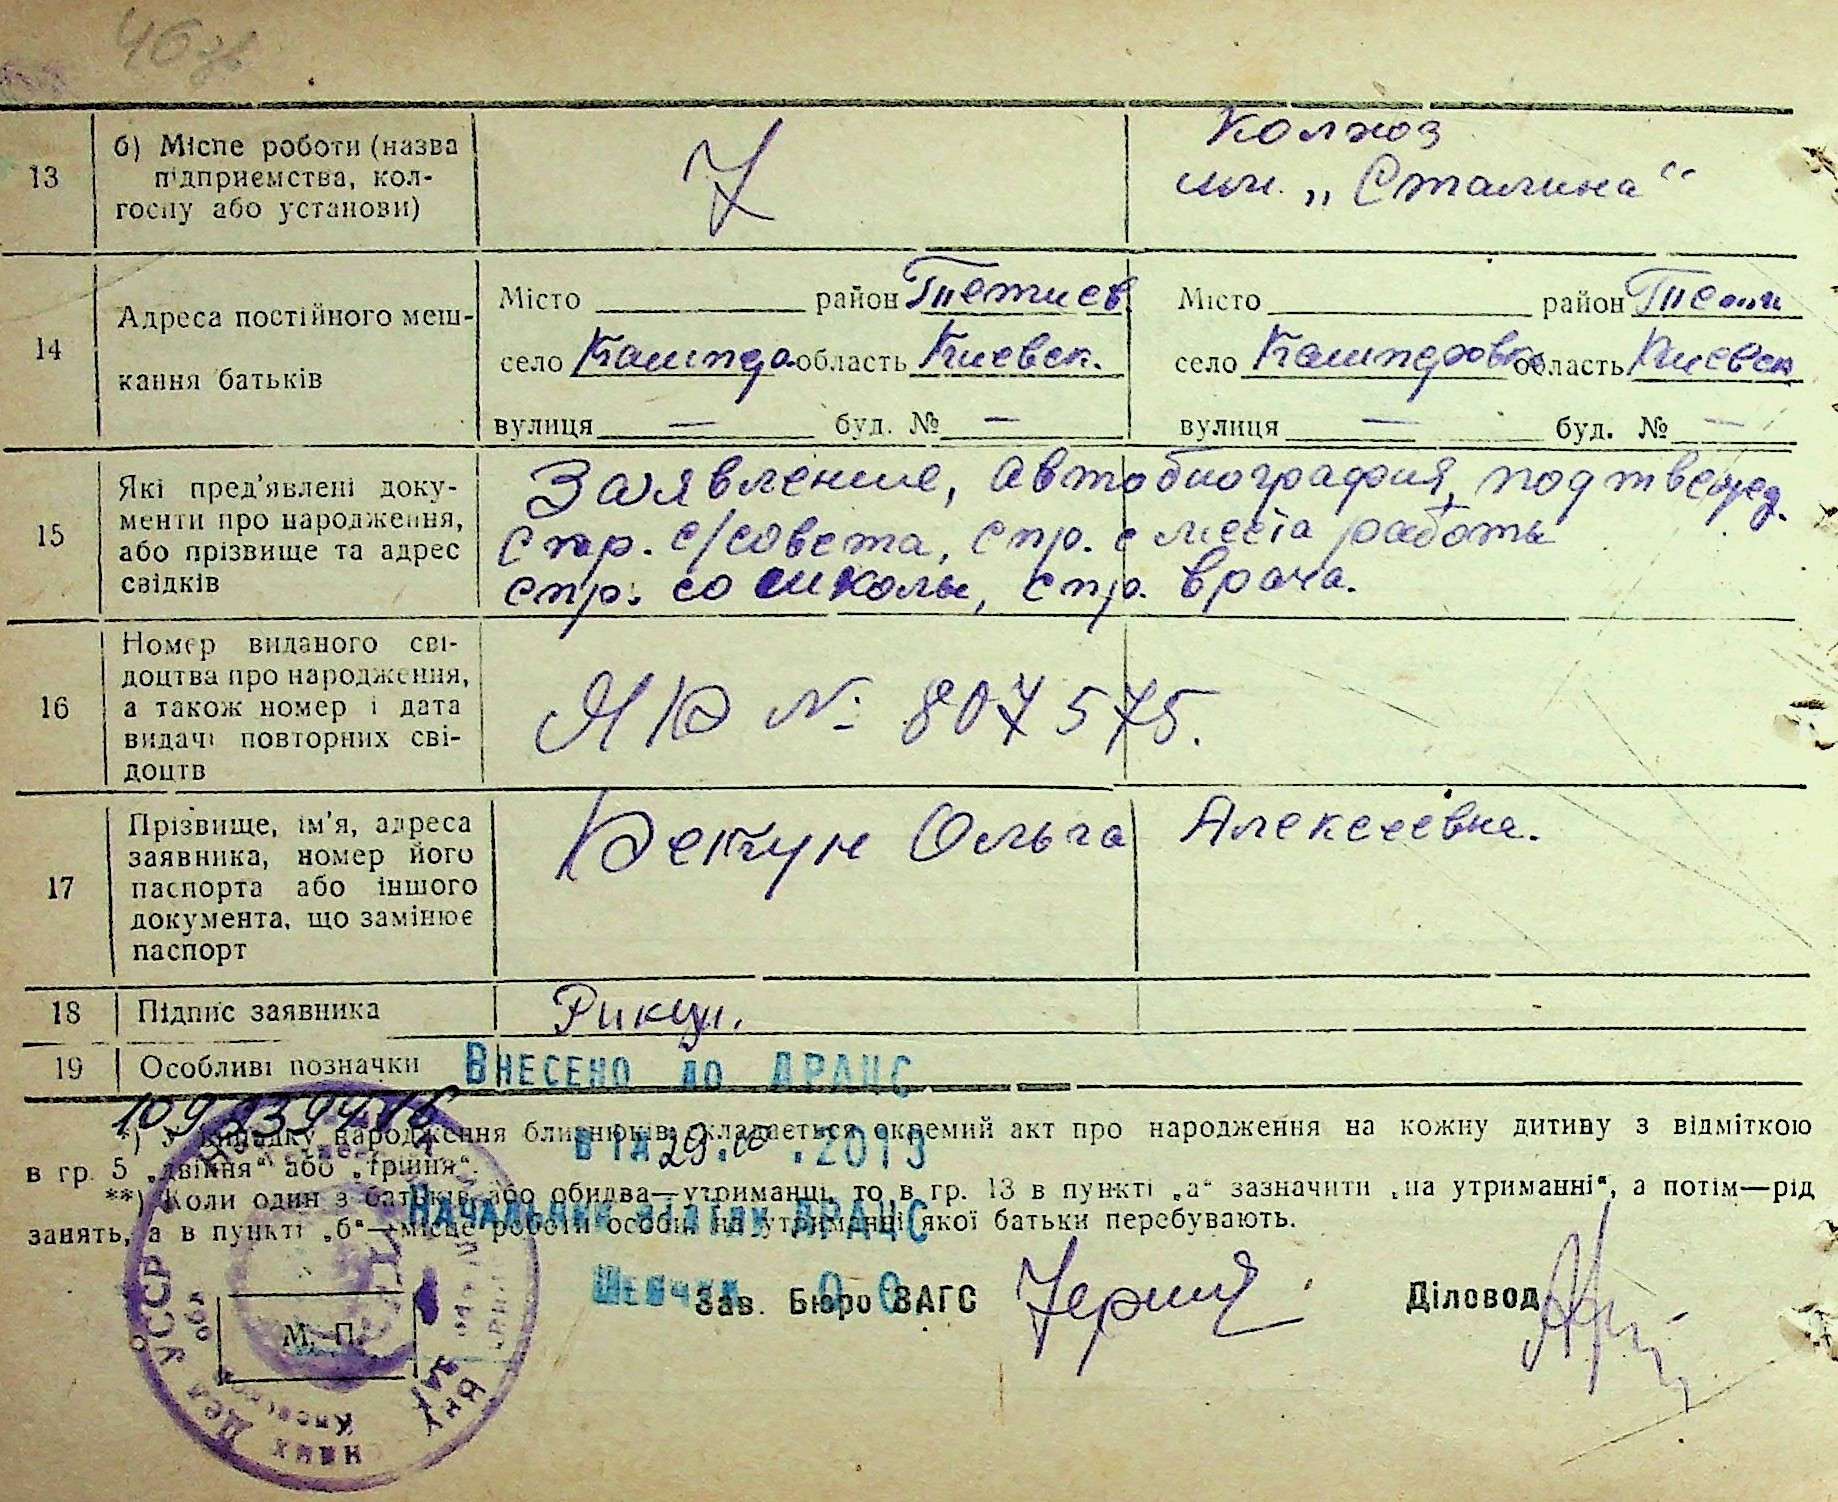 46зв
13 б) Місце роботи (назва підприємства, кол-госпу або установи)
Колхоз
им. „Сталина“
14 Адреса постійного меш-кання батьків
Місто район Тетиев.
село Кашперо. область Киевск.
вулиця — буд. № —
Місто район Тети
село Кашперовка область Киевск
вулиця — буд. № —
15 Які пред'явлені доку-менти про народження, або прізвище та адрес свідків
Заявление, автобиография, подтвержд.
спр. с/совета, спр. с места работы
спр. со школы, спр. врача.
16 Номер виданого сві-доцтва про народження, а також номер і дата видачі повторних сві-доцтв
ЯЮ № 807575.
17 Прізвище, ім'я, адреса заявника, номер його паспорта або іншого документа, що замінює паспорт
Ольга Алексеевна.
18 Підпис заявника
19 Особливі позначки
Внесено до ДРАЦС
*) У випадку народження близнюків складається окремий акт про народження на кожну дитину з відміткою
в гр. 5 „двійня“ або „трійня“.
від 29.10.2013
**) Коли один з батьків або обидва—утриманці, то в гр. 13 в пункті „а“ зазначити „на утриманні“, а потім—рід
занять, а в пункті „б“—місце роботи особи, на утриманні якої батьки перебувають.
Начальник відділу ДРАЦС
Зав. Бюро ЗАГС
Діловод
М. П.
УССР